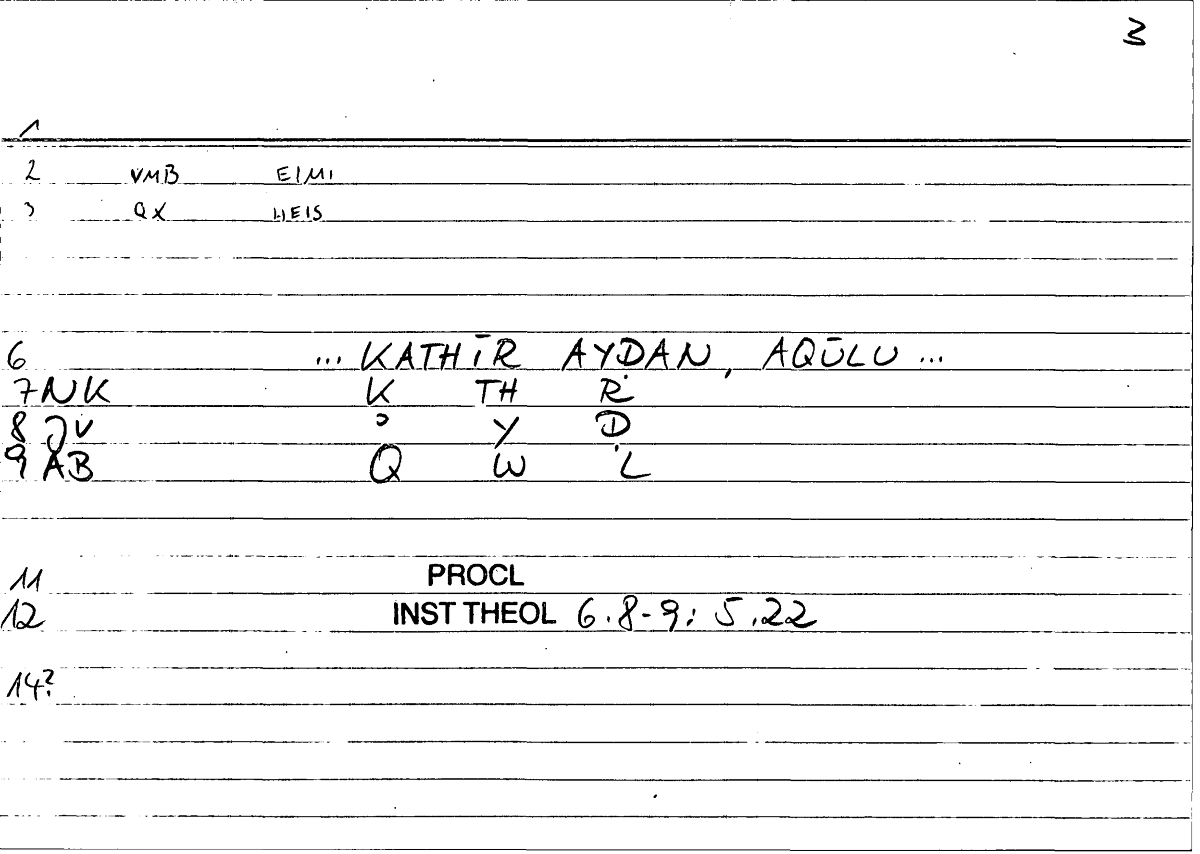 3
1
2 VMB EIMI
3 QX HEIS
6 ... KATHĪR AYḌAN, AQŪLU ...
7 NK K TH R
8 JV ʾ Y Ḍ
9 AB Q W L
11 PROCL
12 INST THEOL 6.8-9; 5.22
14?